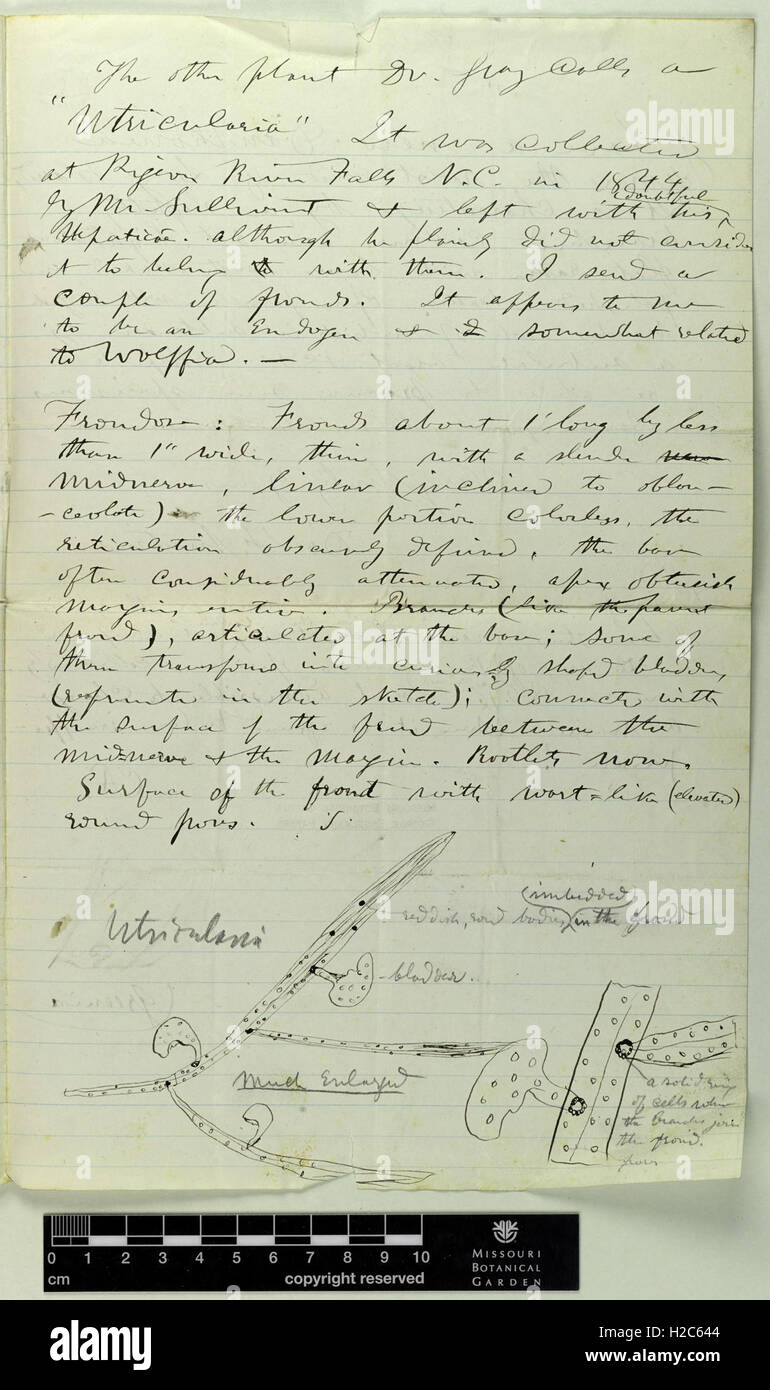 The other plant Dr. Gray calls a
"Utricularia" It was collected
at Pigeon River Falls N.C. in 1844
by Mr. Sullivant & left with his doubtful
Hepaticæ. although he plainly did not consider
it to belong to with them. I send a
couple of fronds. It appears to me
to be an Endogen & somewhat related
to Wolffia. —
Frondose: Fronds about 1' long by less
than 1" wide, thin, with a slender
midnerve, linear (inclined to oblan-
-ceolate) the lower portion colorless, the
reticulation obscurely defined, the base
often considerably attenuated, apex obtusish
margins entire. Branches (like the parent
frond), articulated at the base; some of
them transformed into curiously shaped bladders,
(represented in the sketch); connected with
the surface of the frond between the
midnerve & the margin. Rootlets none.
Surface of the frond with wart-like (elevated)
round pores.
(imbedded)
reddish, round bodies in the frond
Utricularia
bladder.
Much Enlarged
a solid ring
of cells where
the branches join
the frond.
pores
0 1 2 3 4 5 6 7 8 9 10
cm
copyright reserved
MISSOURI
BOTANICAL
GARDEN
alamy
alamy stock photo
H2C644
www.alamy.com